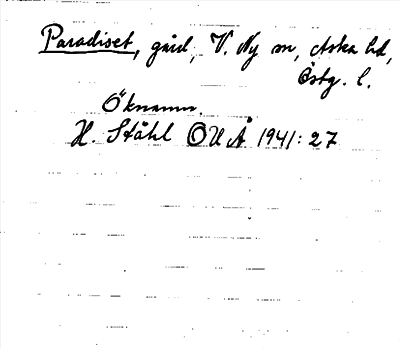 Paradiset, gård, V. Ny sn, Aska hd,
Östg. l.
Öknamn.
H. Ståhl OUÅ 1941: 27